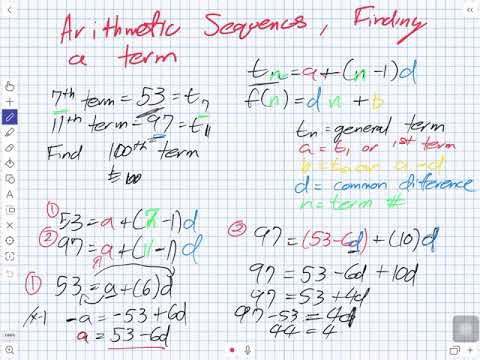 Arithmetic Sequences, Finding
a term
7th term = 53 = t7
11th term = 97 = t11
Find 100th term
t100
tn = a + (n - 1)d
f(n) = dn + b
tn = general term
a = t1 or 1st term
b = t0 or a - d
d = common difference
n = term #
① 53 = a + (7 - 1)d
② 97 = a + (11 - 1)d
① 53 = a + (6)d
-a = -53 + 6d
a = 53 - 6d
③ 97 = (53 - 6d) + (10)d
97 = 53 - 6d + 10d
97 = 53 + 4d
97 - 53 = 4d
44 = 4